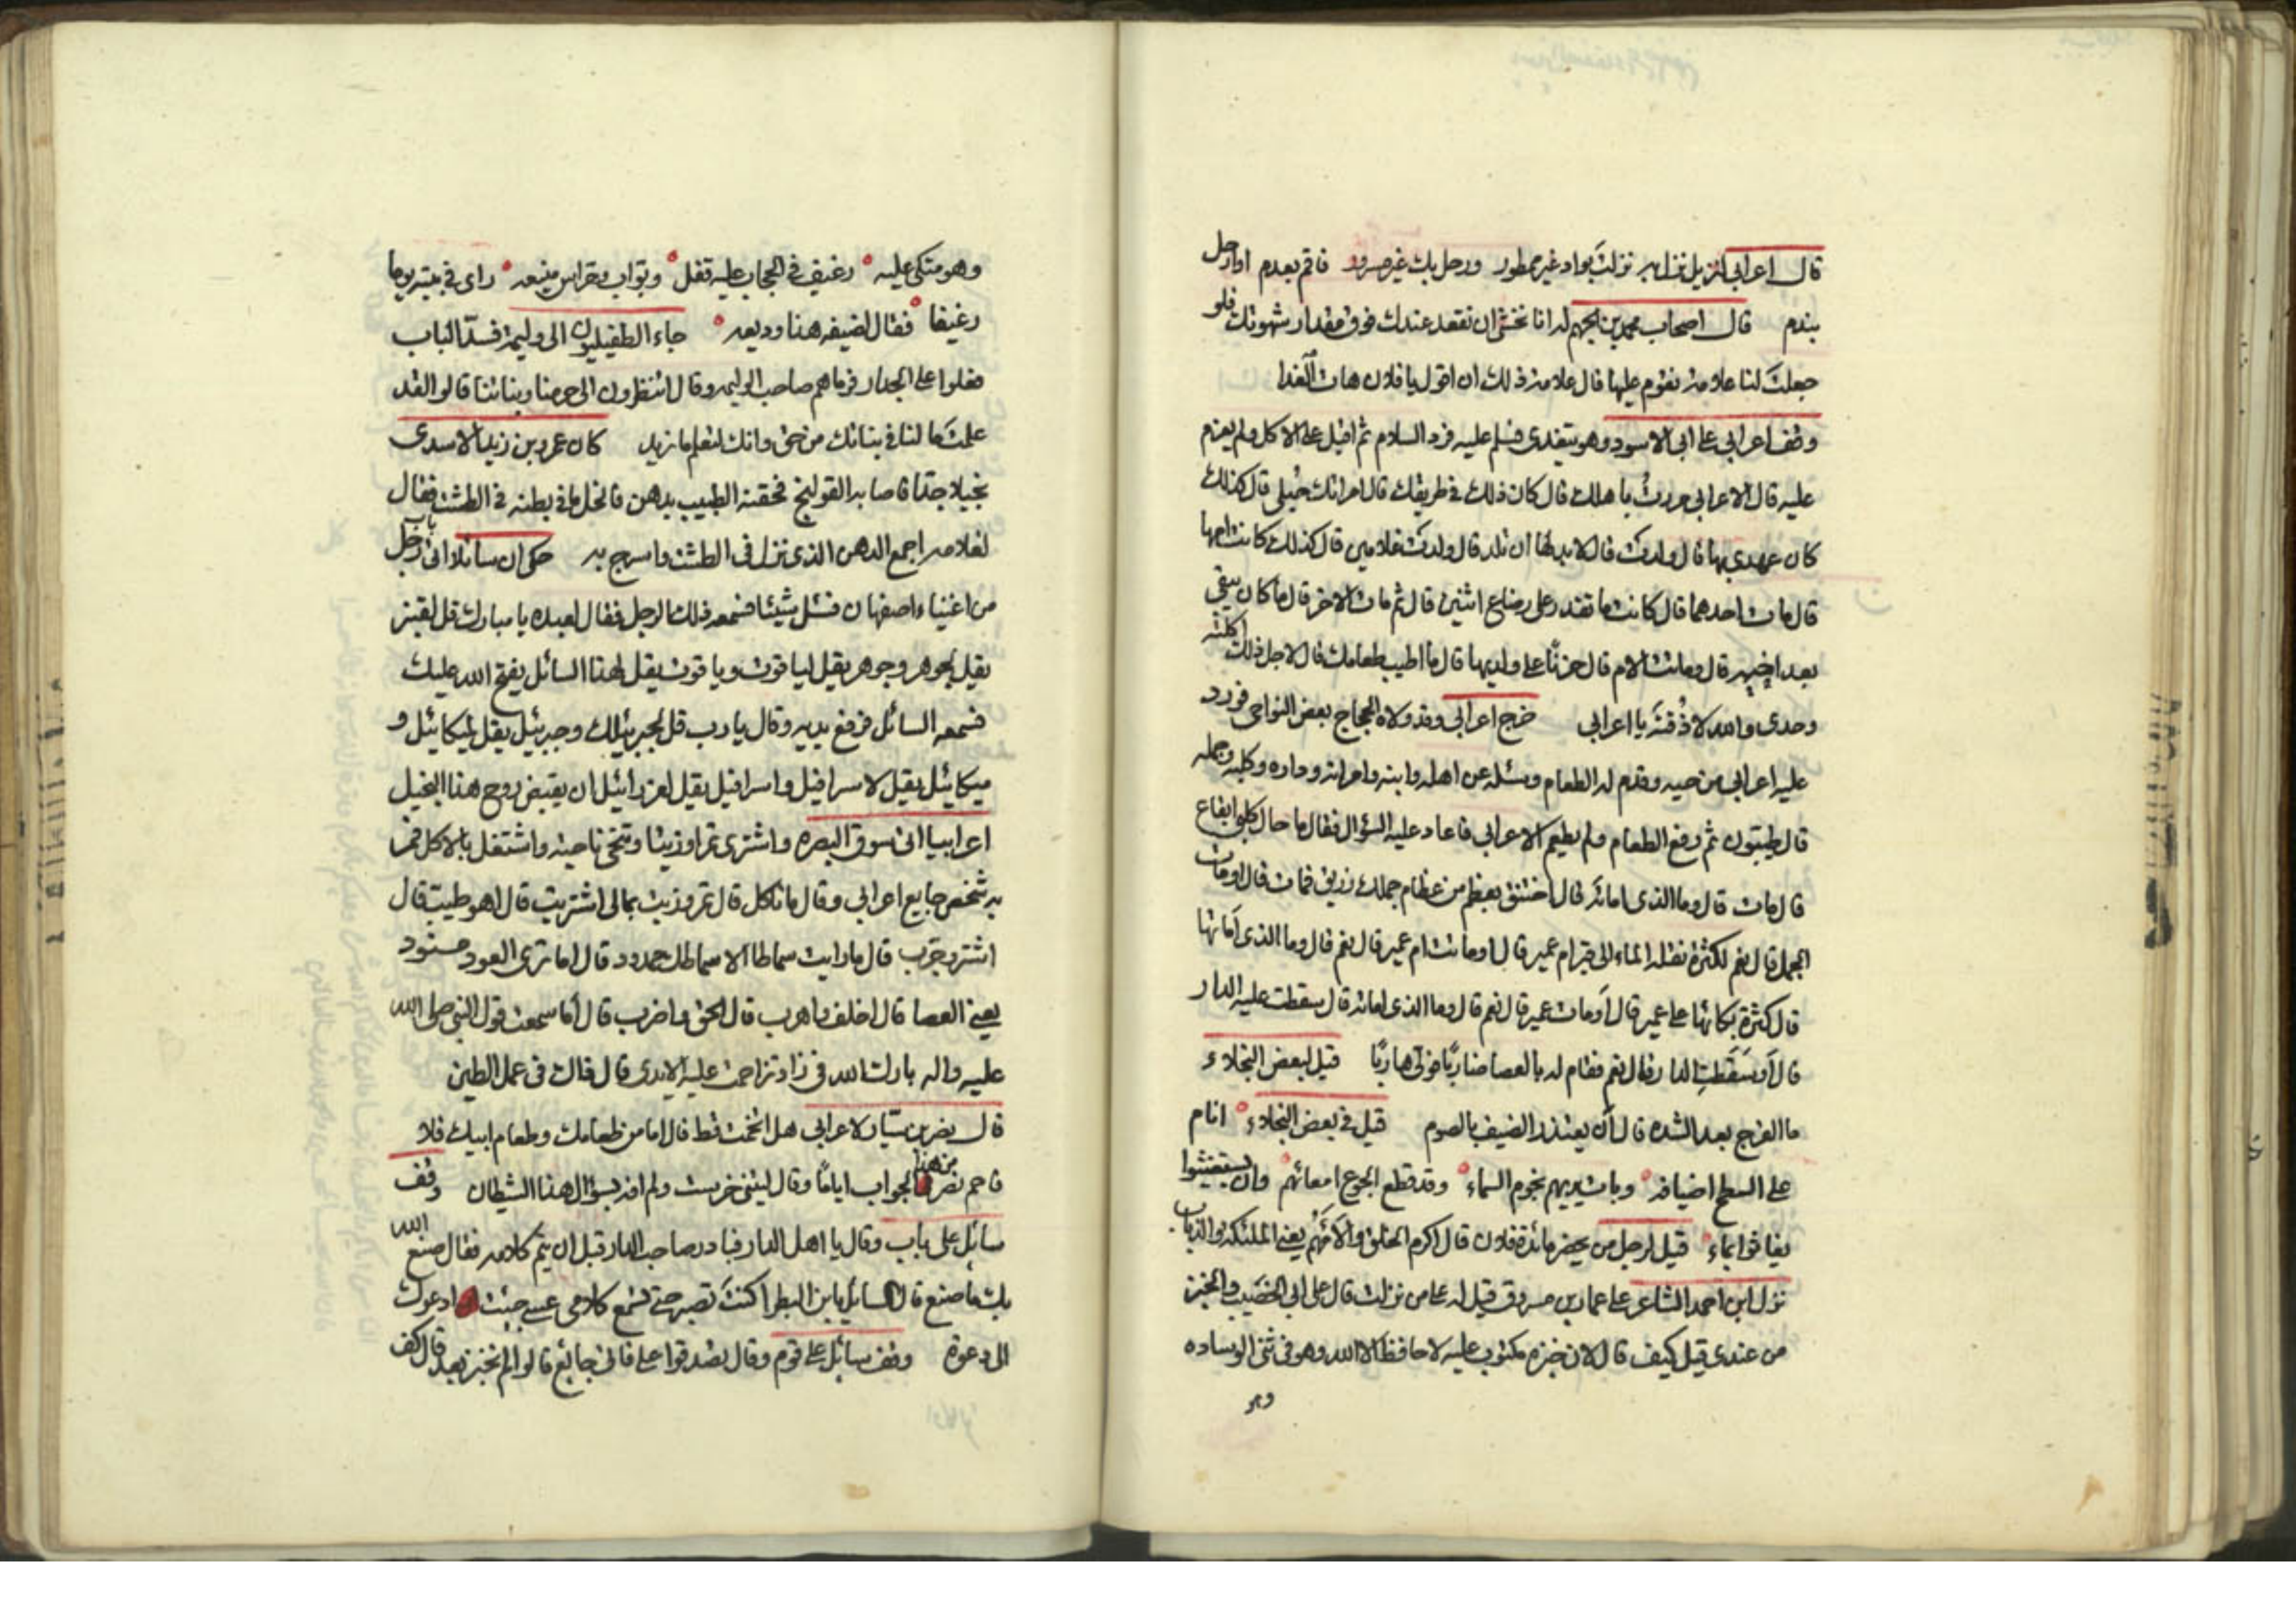 قال اعرابي لنزيل نزل به نزلت بواد غير ممطور ورجل بك غير مسرور فاقم بعدم او ارحل
بندم قال اصحاب محمد بن الجهم له انا نخشى ان نقعد عندك فوق مقدار شهوتك فلو
جعلت لنا علامة نقوم عليها قال علامة ذلك ان اقول يا فلان هات الغدا
وقف اعرابي على ابي الاسود وهو يتغدى فسلم عليه فرد السلام ثم اقبل على الاكل ولم يعزم
عليه قال الاعرابي مررت باهلك قال كان ذلك في طريقك قال امراتك حبلى قال كذلك
كان عهدي بها قال ولدت قال لا بد لها ان تلد قال ولدت غلامين قال كذلك كانت امها
قال مات احدهما قال كانت ما تقدر على رضاع اثنين قال ثم مات الاخر قال ما كان يبقى
بعد اخيه قال وماتت الام قال حزنا على ولديها قال ما اطيب طعامك قال لاجل ذلك اكلته
وحدي والله لا ذقته يا اعرابي خرج اعرابي وقد ولاه الحجاج بعض النواحي فورد
عليه اعرابي من حيه وقدم له الطعام وسئله عن اهله وابنه وامراته وداره وكلبه وجمله
قال طيبون ثم رفع الطعام ولم يطعم الاعرابي فاعاد عليه السؤال فقال ما حال كلبي ايقاع
قال مات قال وما الذي اماته قال اختنق بعظم من عظام جملك زريق فمات قال اومات
الجمل قال نعم لكثرة نقله الماء الى قبر ام عمير قال اوماتت ام عمير قال نعم قال وما الذي اماتها
قال كثرة بكائها على عمير قال اومات عمير قال نعم قال وما الذي اماته قال سقطت عليه الدار
قال اوسقطت الدار فقال نعم فقام له بالعصا ضاربا فولى هاربا قيل لبعض البخلاء
ما الفرج بعد الشده قال ان يعتذر الضيف بالصوم قيل في بعض البخلاء انام
على السطح اضيافه وبات يريهم نجوم السماء وقد قطع الجوع امعائهم وان يستغيثوا
يغاثوا بماء قيل لرجل من يحضر مائدة فلان قال اكرم الخلق والأمهم يعني الملئكة والذباب
نزل ابن احمد الشاعر على عمار بن مسروق قيل له على من نزلت قال على ابي الخصيب والخبز
من عندي قيل كيف قال لان خبزه مكتوب عليه لا حافظ الا الله وهو في ثني الوساده
وهو
وهو متكى عليه رغيف في الحجاب عليه قفل وبواب وحراس منيعه راى في بيته يوما
رغيفا فقال لضيفه هذا وديعه جاء الطفيليون الى وليمة فسد الباب
فعلوا على الجدار فزماهم صاحب الوليمه وقال انتظرون الى حرمنا وبناتنا قالوا لقد
علمت ما لنا في بناتك من حق وانك لتعلم ما نريد كان عمرو بن زيد الاسدى
بخيلا جدا فاصابه القولنج فحقنه الطبيب بدهن فانحل ما في بطنه في الطشت فقال
لغلامه اجمع الدهن الذي نزل في الطشت واسرج به حكى ان سائلا اتى باب رجل
من اغنياء اصفهان فسئل شيئا فسمعه ذلك الرجل فقال لعبده يا مبارك قل لقنبر
يقل لجوهر وجوهر يقل لياقوت وياقوت يقل لهذا السائل يفتح الله عليك
فسمعه السائل فرفع يديه وقال يا رب قل لجبرئيل وجبرئيل يقل لميكائيل و
ميكائيل يقل لاسرافيل واسرافيل يقل لعزرائيل ان يقبض روح هذا البخيل
اعرابيا اتى سوق البصره واشترى تمرا وزيتا وتنحى ناحية واشتغل بالاكل فمر
به شخص جايع اعرابي وقال ما تاكل قال تمر وزيت بمالي اشتريت قال اهو طيب قال
اشتر وجرب قال ما رايت سماطا الا سماطك ممدود قال اما ترى العود مسنود
يعني العصا قال اخلف واهرب قال الحق واضرب قال أما سمعت قول النبي صلى الله
عليه واله بارك الله في زاد تزاحمت عليه الايدى قال قالت في عمل الطين
قال نصر بن سيار لاعرابي هل اتخمت قط قال اما من طعامك وطعام ابيك فلا
فاحم نصر من هذا الجواب اياما وقال ليتني خرست ولم افه بسؤال هذا الشيطان وقف
سائل على باب وقال يا اهل الدار فبادر صاحب الدار قبل ان يتم كلامه فقال صنع الله
بك ما صنع قال السائل يا بن البطرا كنت تصبر حتى تسمع كلامي عسى جئت ادعوك
الى دعوة وقف سائل على قوم وقال تصدقوا على فاني جائع قالوا لم نخبز بعد قال كف